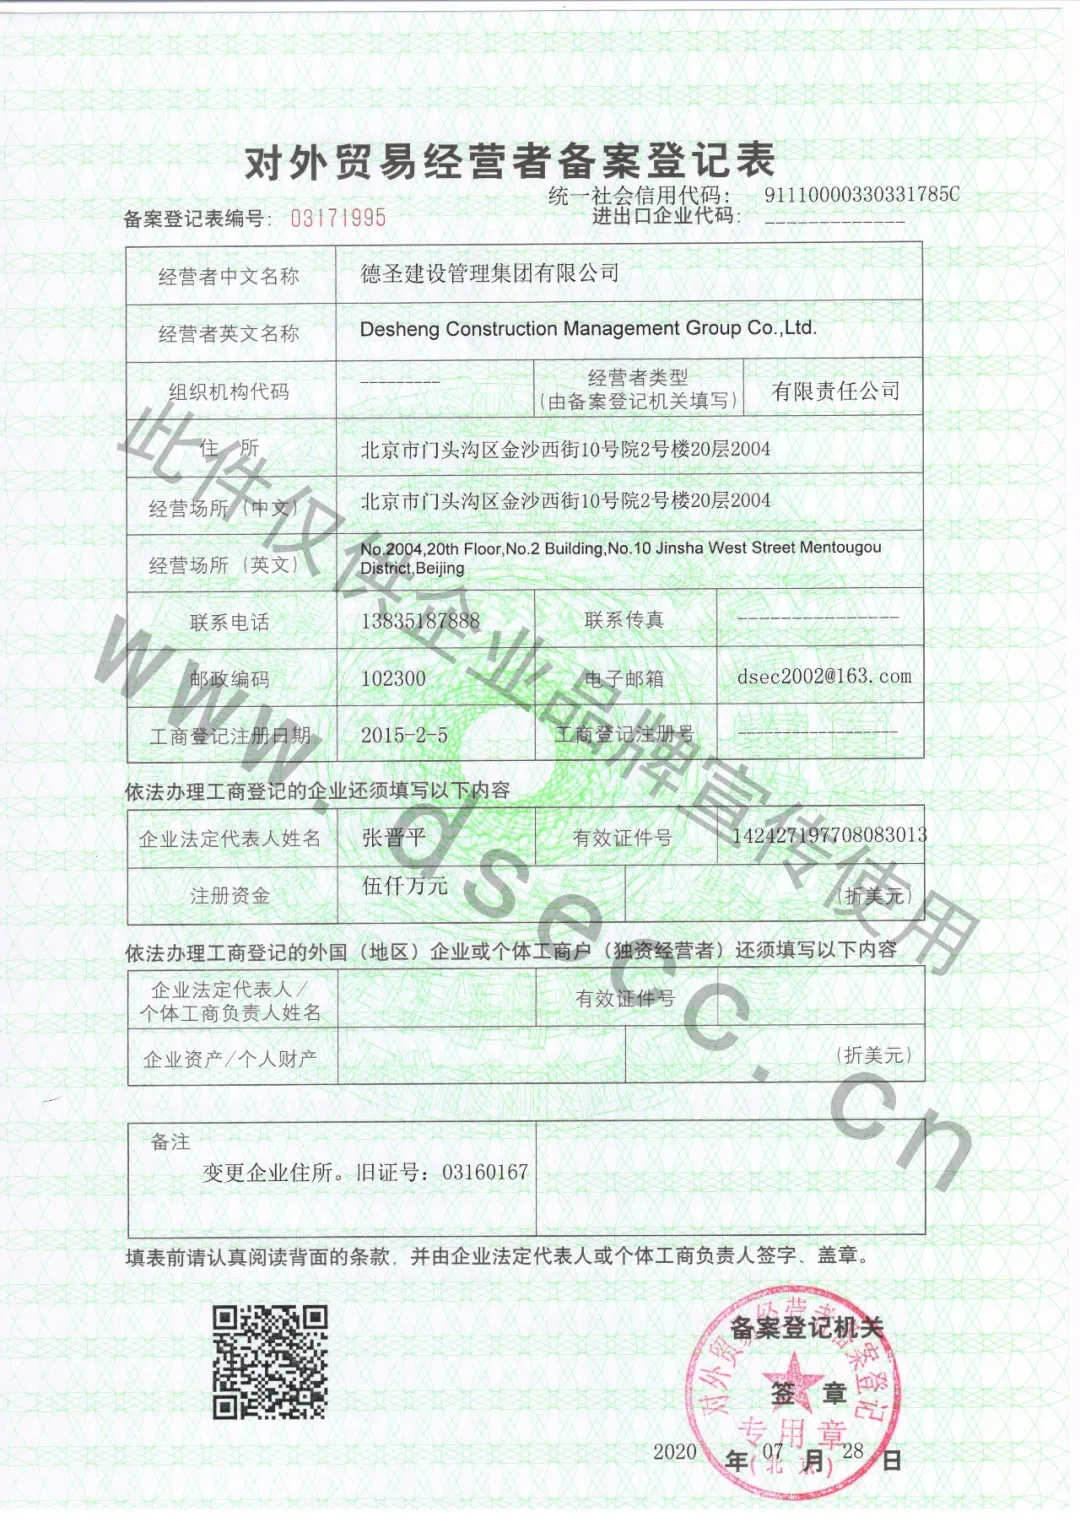 对外贸易经营者备案登记表
统一社会信用代码： 91110000330331785C
备案登记表编号： 03171995
进出口企业代码： -------------
经营者中文名称 德圣建设管理集团有限公司
经营者英文名称 Desheng Construction Management Group Co.,Ltd.
组织机构代码 --------- 经营者类型 有限责任公司
(由备案登记机关填写)
住 所 北京市门头沟区金沙西街10号院2号楼20层2004
经营场所（中文） 北京市门头沟区金沙西街10号院2号楼20层2004
经营场所（英文） No.2004,20th Floor,No.2 Building,No.10 Jinsha West Street Mentougou
District,Beijing
联系电话 13835187888 联系传真 ----------------
邮政编码 102300 电子邮箱 dsec2002@163.com
工商登记注册日期 2015-2-5 工商登记注册号 ----------------
依法办理工商登记的企业还须填写以下内容
企业法定代表人姓名 张晋平 有效证件号 142427197708083013
注册资金 伍仟万元 (折美元)
依法办理工商登记的外国（地区）企业或个体工商户（独资经营者）还须填写以下内容
企业法定代表人/
个体工商负责人姓名 有效证件号
企业资产/个人财产 (折美元)
备注
变更企业住所。旧证号：03160167
填表前请认真阅读背面的条款，并由企业法定代表人或个体工商负责人签字、盖章。
备案登记机关
签 章
2020 年 07 月 28 日
对外贸易经营者备案登记
专用章
(北京)
此件仅供企业品牌宣传使用
www.dsecc.cn